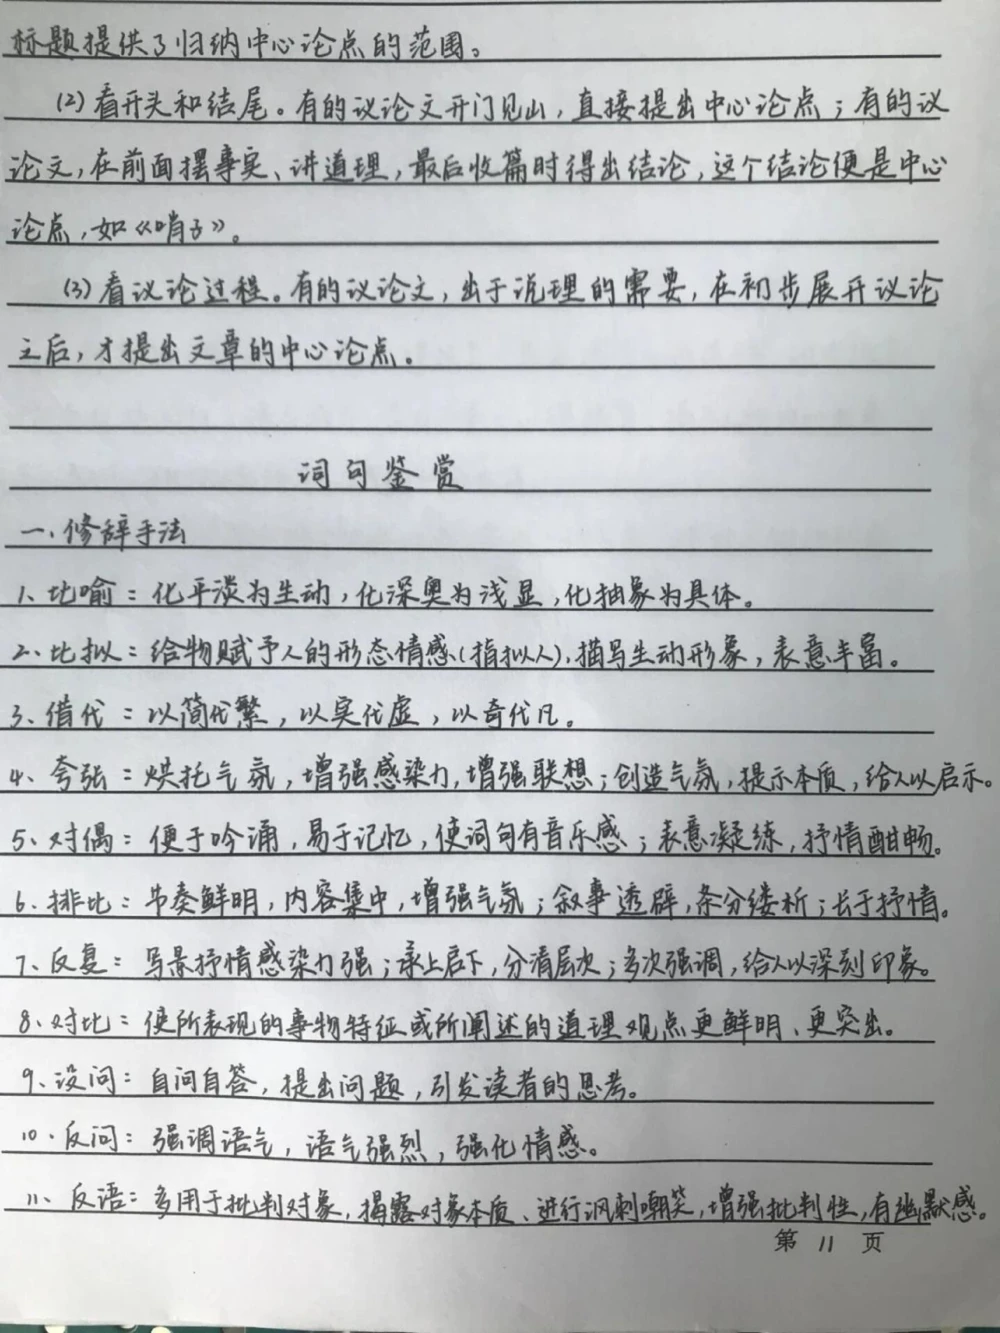 标题提供了归纳中心论点的范围。
(2)看开头和结尾。有的议论文开门见山，直接提出中心论点；有的议
论文，在前面摆事实、讲道理，最后收篇时得出结论，这个结论便是中心
论点，如《哨子》。
(3)看议论过程。有的议论文，出于说理的需要，在初步展开议论
之后，才提出文章的中心论点。
词句鉴赏
一、修辞手法
1、比喻：化平淡为生动，化深奥为浅显，化抽象为具体。
2、比拟：给物赋予人的形态情感(指拟人)，描写生动形象，表意丰富。
3、借代：以简代繁，以实代虚，以奇代凡。
4、夸张：烘托气氛，增强感染力，增强联想；创造气氛，提示本质，给人以启示。
5、对偶：便于吟诵，易于记忆，使词句有音乐感；表意凝练，抒情酣畅。
6、排比：节奏鲜明，内容集中，增强气氛；叙事透辟，条分缕析；长于抒情。
7、反复：写景抒情感染力强；承上启下，分清层次；多次强调，给人以深刻印象。
8、对比：使所表现的事物特征或所阐述的道理观点更鲜明、更突出。
9、设问：自问自答，提出问题，引发读者的思考。
10、反问：强调语气，语气强烈，强化情感。
11、反语：多用于批判对象，揭露对象本质、进行讽刺嘲笑，增强批判性，有幽默感。
第 11 页